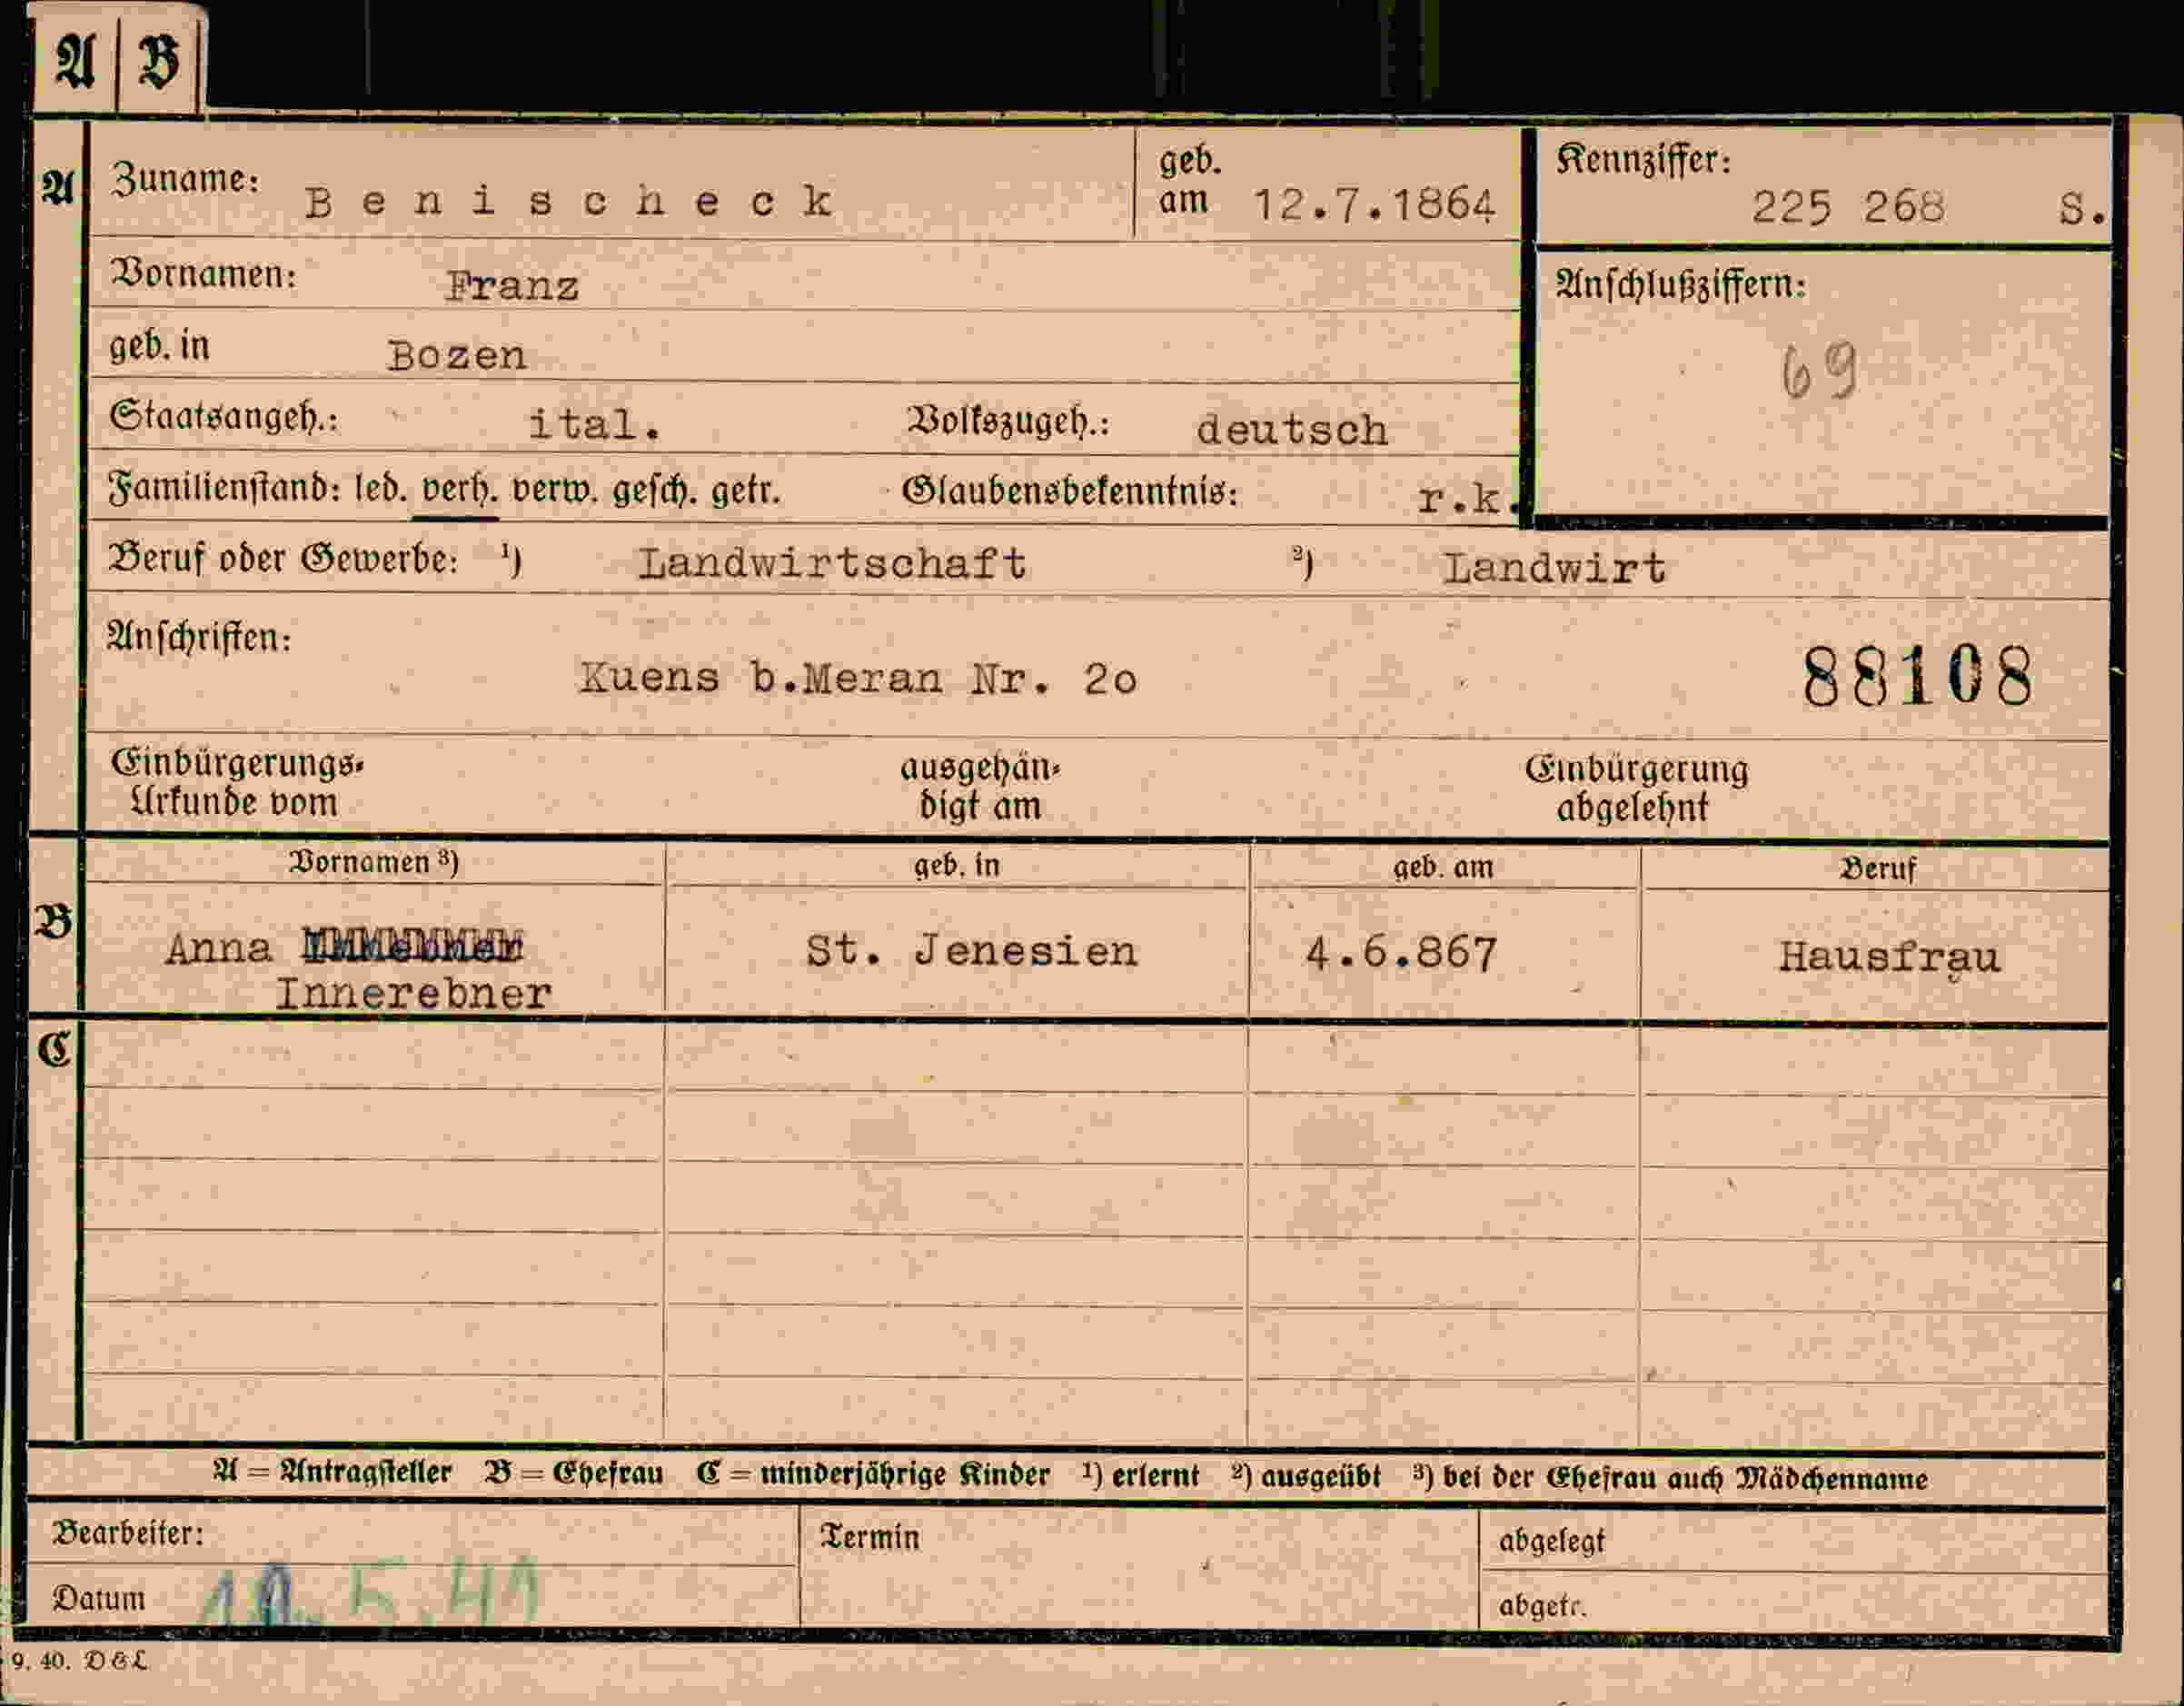 A B
A Zuname: Benischeck geb. am 12.7.1864 Kennziffer: 225 268 S.
Vornamen: Franz Anschlußziffern:
69
geb. in Bozen
Staatsangeh.: ital. Volkszugeh.: deutsch
Familienstand: led. verh. verw. gesch. getr. Glaubensbekenntnis: r.k.
Beruf oder Gewerbe: ¹) Landwirtschaft ²) Landwirt
Anschriften:
Kuens b.Meran Nr. 2o 88108
Einbürgerungs- ausgehän- Einbürgerung
Urkunde vom digt am abgelehnt
Vornamen ³) geb. in geb. am Beruf
B Anna St. Jenesien 4.6.867 Hausfrau
Innerebner
C
A = Antragsteller B = Ehefrau C = minderjährige Kinder ¹) erlernt ²) ausgeübt ³) bei der Ehefrau auch Mädchenname
Bearbeiter: Termin abgelegt
Datum 5.41 abgetr.
9. 40. D & L